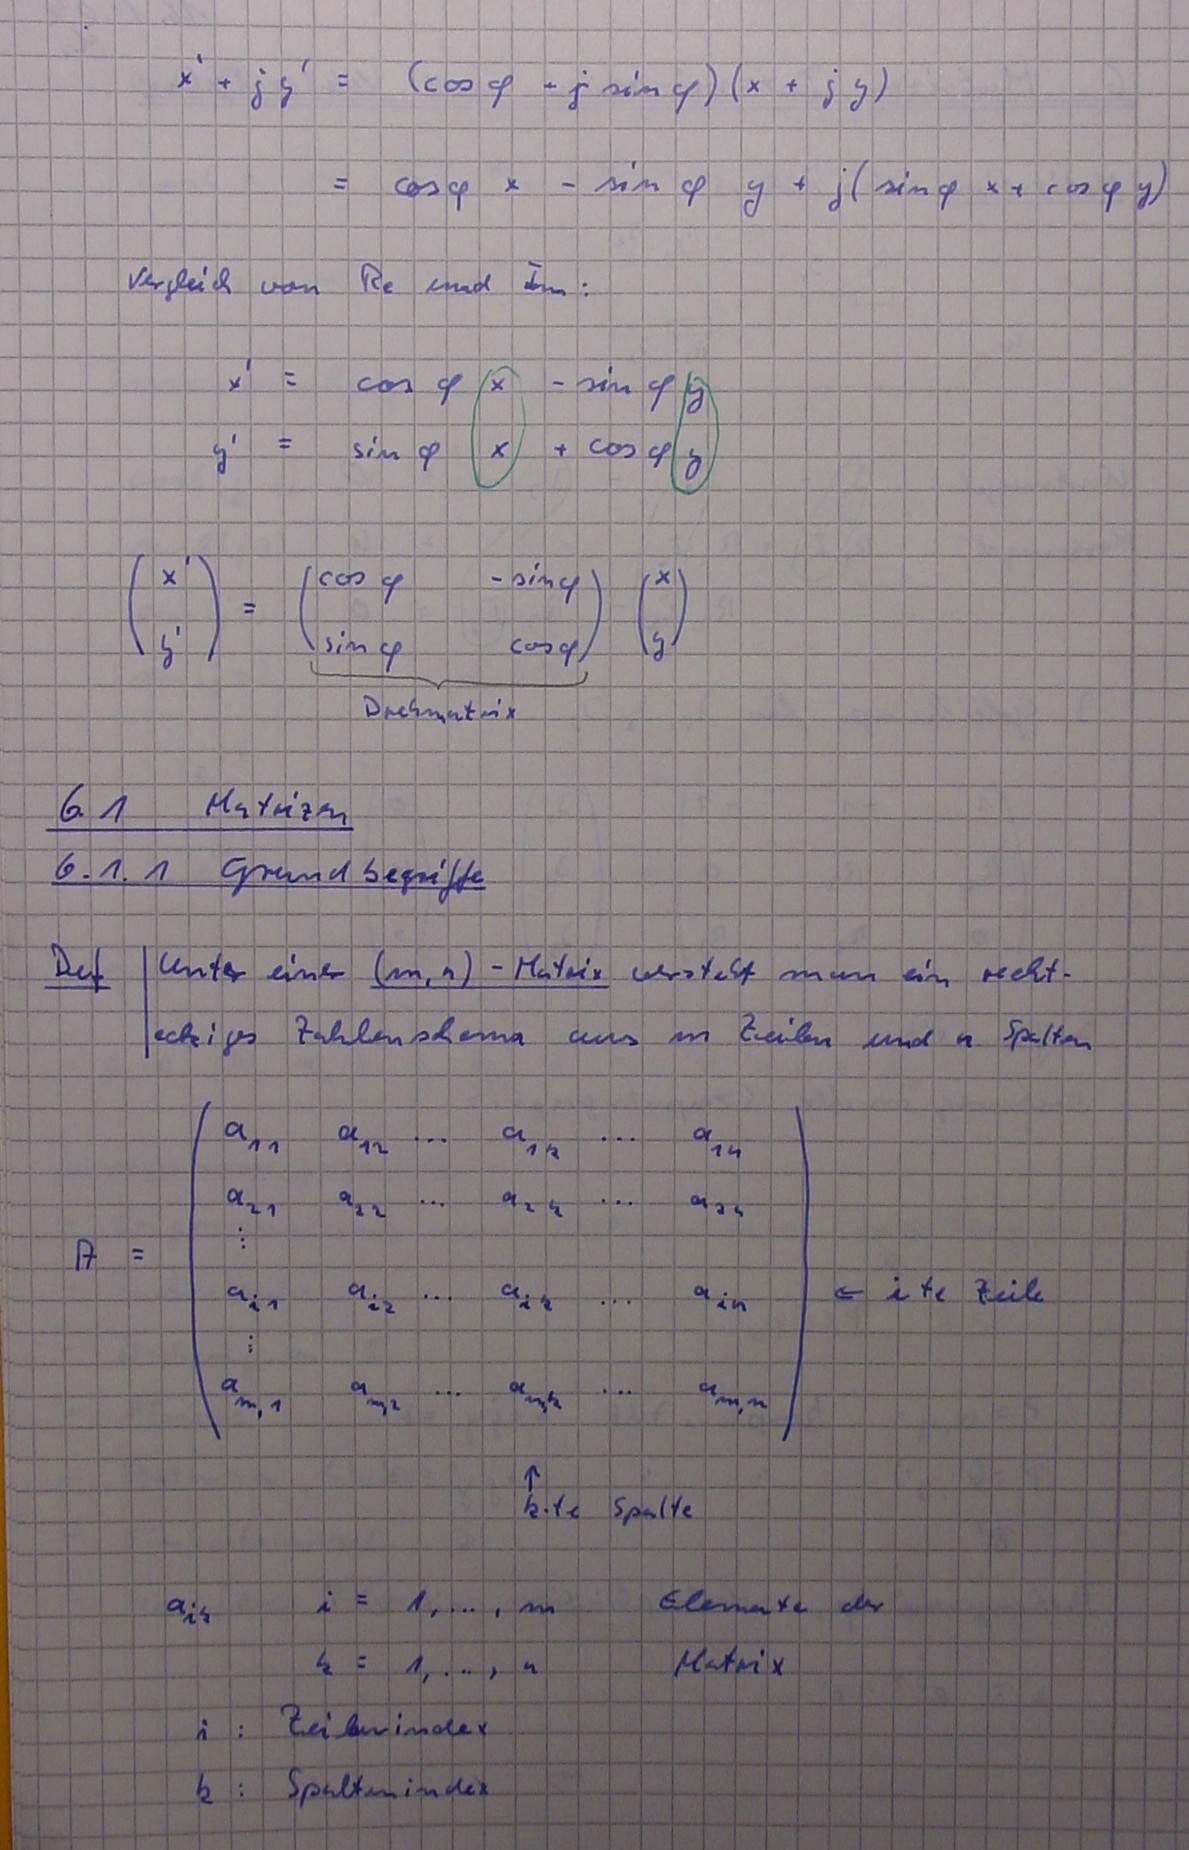 x' + j y' = (cos φ + j sin φ)(x + j y)
= cos φ x - sin φ y + j(sin φ x + cos φ y)
Vergleich von Re und Im:
x' = cos φ x - sin φ y
y' = sin φ x + cos φ y
(x' y') = (cos φ -sin φ sin φ cos φ) (x y)
Drehmatrix
6.1 Matrizen
6.1.1 Grundbegriffe
Def Unter einer (m,n)-Matrix versteht man ein recht-
eckiges Zahlenschema aus m Zeilen und n Spalten
a11 a12 ... a1k ... a1n
a21 a22 ... a2k ... a2n
⋮
A = ai1 ai2 ... aik ... ain ← i te Zeile
⋮
am,1 am,2 ... am,k ... am,n
↑
k-te Spalte
aik i = 1, ..., m Elemente der
k = 1, ..., n Matrix
i : Zeilenindex
k : Spaltenindex